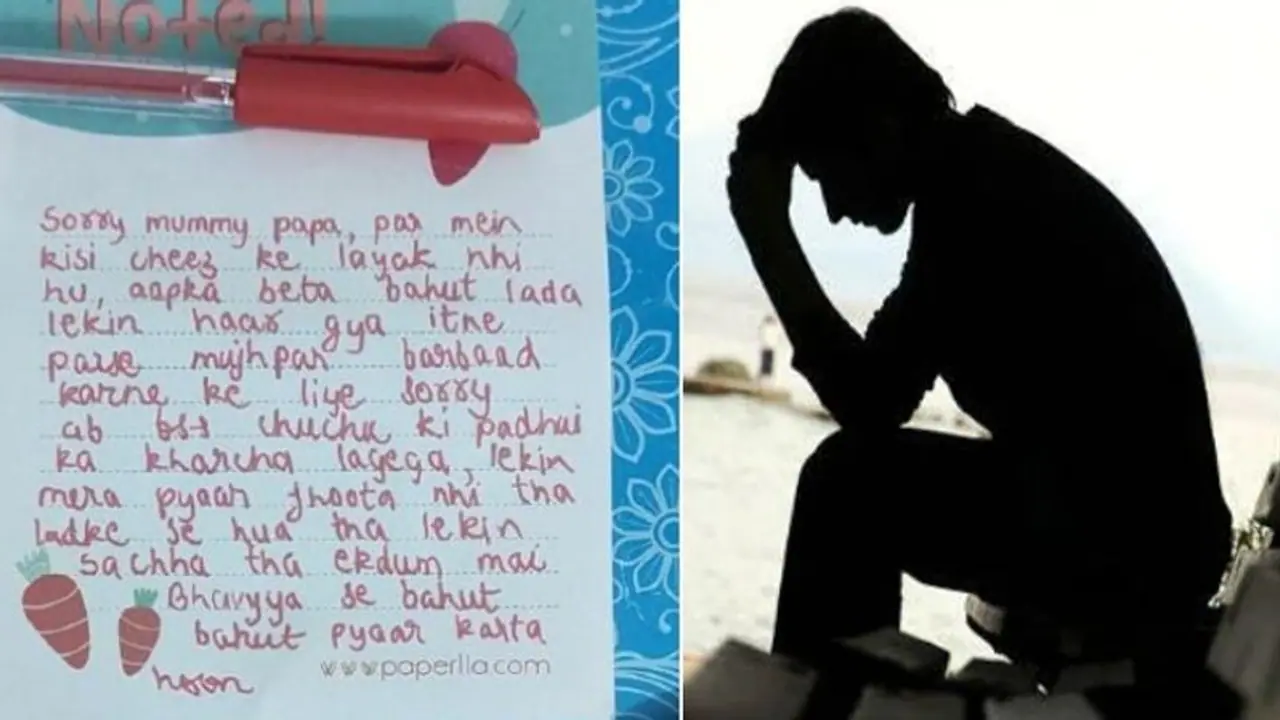 Noted!
Sorry mummy papa, par mein
kisi cheez ke layak nhi
hu, aapka beta bahut lada
lekin haar gya itne
paise mujhpar barbaad
karne ke liye sorry
ab bss chuchu ki padhai
ka kharcha lagega, lekin
mera pyaar jhoota nhi tha
ladke se hua tha lekin
sachha tha ekdum mai
Bhavyya se bahut
bahut pyaar karta
hoon
www.paperlla.com